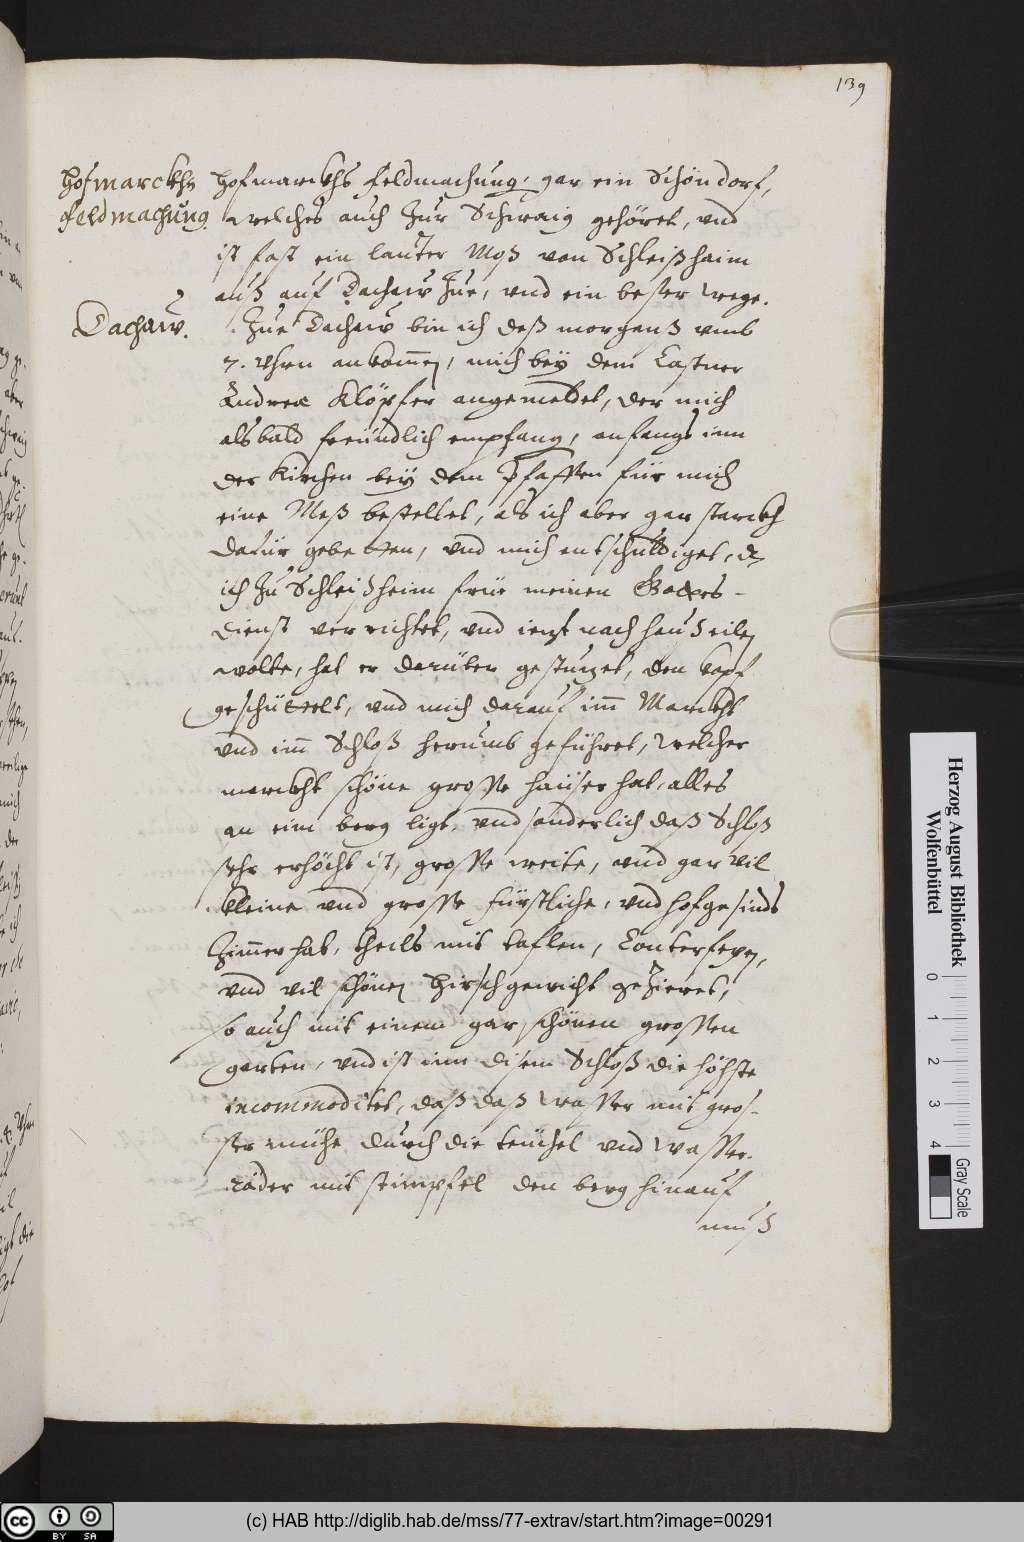 139
Hofmarckhs
Feldmachung.
Hofmarckhs Feldmachung, gar ein Schön dorf,
welches auch zur Schwaig gehöret, vnd
ist fast ein lauter Moß von Schleißhaim
auß auf Dachaw zue, vnd ein böser wege.
Dachaw.
Zue Dachaw bin ich deß morgenß vmb
7. Vhrn ankom̄en, mich bey dem Castner
Andrea Klöpfer angemeldet, der mich
alsbald freündlich empfang, anfangs inn
der Kirchen bey dem Pfaffen für mich
eine Meß bestellet, als ich aber gar starckh
dafür gebetten, vnd mich entschuldiget, dz
ich zu Schleißheim früe meinen Gottes-
dienst verrichtet, vnd ietzt nach hauß eilen
wolte, hat er darüber gestutzet, den kopf
geschüttelt, vnd mich darauf im̄ Marckht
vnd im̄ Schloß herumb geführet, welcher
marckht schöne grosse heüser hat, alles
an eim berg ligt, vnd sonderlich daß Schloß
sehr erhöcht ist, grosse weite, vnd gar vil
kleine vnd grosse fürstliche, vnd hofgesinds
Zim̄er hat, theils mit taflen, Conterfeyen,
vnd vil schönen Hirschgewicht gezieret,
so auch mit einem gar schönen grossen
garten, vnd ist inn disem Schloß die höhste
incommoditet, daß daß wasser mit gros-
ser mühe durch die teüchel vnd wasser-
räder mit stimpfel den berg hinauf
muß
Herzog August Bibliothek
Wolfenbüttel
0 1 2 3 4
Gray Scale
cc BY SA
(c) HAB http://diglib.hab.de/mss/77-extrav/start.htm?image=00291